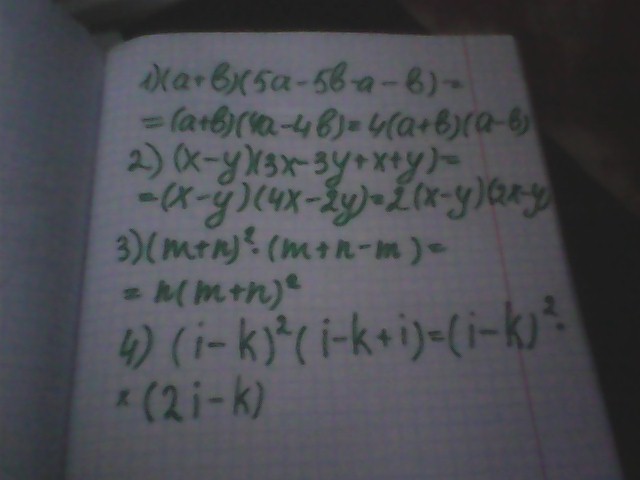 1)(a+b)(5a-5b-a-b)=
=(a+b)(4a-4b)=4(a+b)(a-b)
2) (x-y)(3x-3y+x+y)=
=(x-y)(4x-2y)=2(x-y)(2x-y)
3)(m+n)²·(m+n-m)=
=n(m+n)²
4) (i-k)²(i-k+i)=(i-k)²·
×(2i-k)